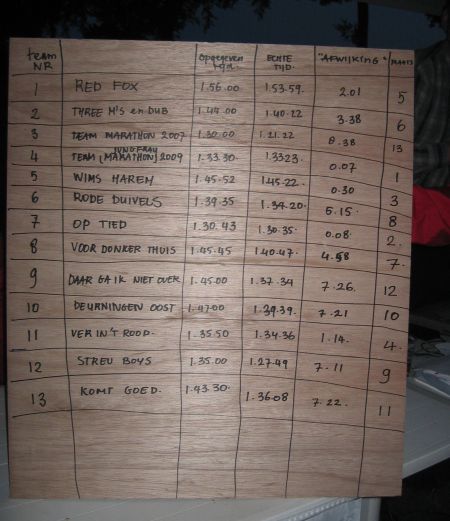 team NR opgegeven tijd. ECHTE TIJD. "AFWIJKING" PLAATS
1 RED FOX 1.56.00 1.53.59. 2.01 5
2 THREE M'S en DUB 1.44.00 1.40.22 3.38 6
3 TEAM MARATHON 2007 1.30.00 1.21.22 8.38 13
4 TEAM [JUNGFRAU MARATHON] 2009 1.33.30. 1.33.23 0.07 1
5 WIMS HAREM 1.45.52 1.45.22. 0.30 3
6 RODE DUIVELS 1.39.35 1.34.20. 5.15. 8
7 OP TIED 1.30.43 1.30.35. 0.08. 2.
8 VOOR DONKER THUIS 1.45.45 1.40.47. 4.58 7.
9 DAAR GA IK NIET OVER 1.45.00 1.37.34 7.26. 12
10 DEURNINGEN OOST 1.47.00 1.39.39. 7.21 10
11 VER IN'T ROOD. 1.35.50 1.34.36 1.14. 4.
12 STREU BOYS 1.35.00 1.27.49 7.11 9
13 KOMT GOED. 1.43.30. 1.36.08 7.22. 11